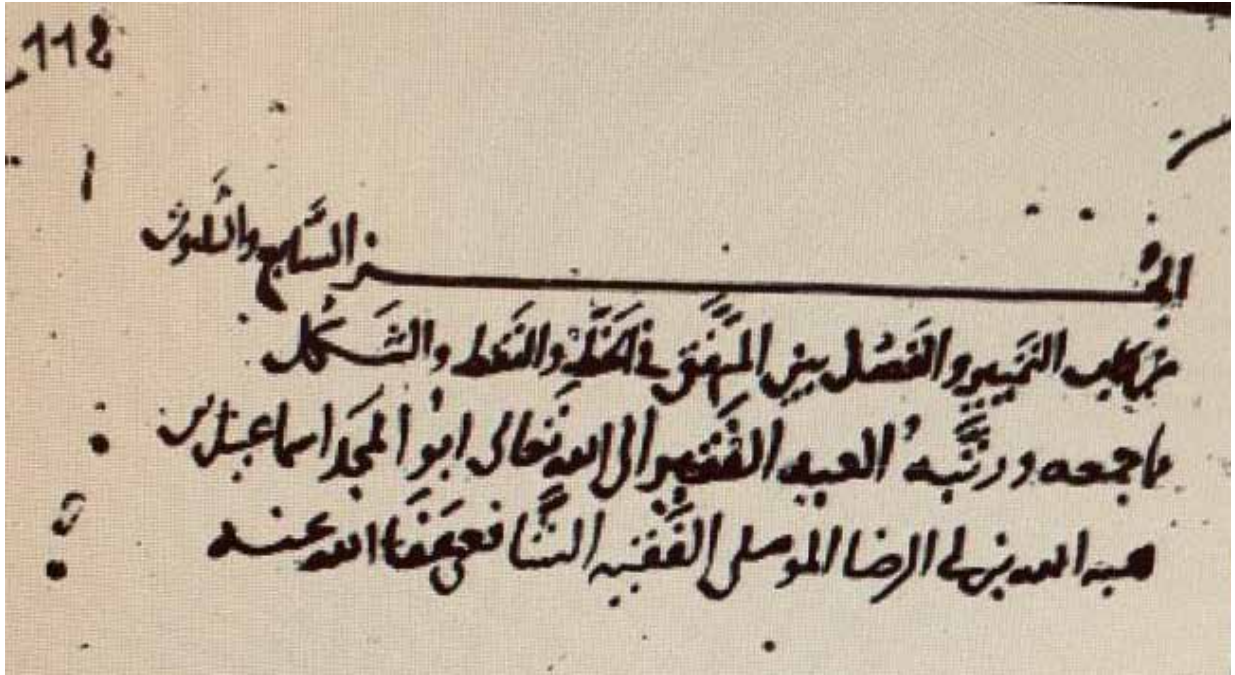 112
الجُـــــــزء السَّابع والثَّلاثون
من كتاب التمييز والفَصْل بين المتَّفِق في الخَطِّ والنَقط والشَكْل
مما جمعه ورتَّبهُ العبد الفَقير الى الله تعالى ابو المَجد اسماعيل بن
هبة الله بن ابي الرضا الموصلي الفَقيه الشَّافعي عَفَا الله عنه